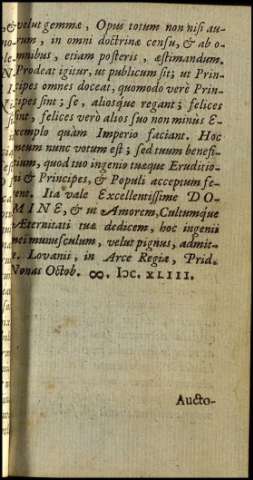 & velut gemmæ, Opus totum non nisi au-
rum, in omni doctrinæ censu, & ab o-
mnibus, etiam posteris, æstimandum.
Prodeat igitur, ut publicum sit; ut Prin-
cipes omnes doceat, quomodo verè Prin-
cipes sint; se, aliosque regant; felices
sint, felices verò alios suo non minùs E-
xemplo quàm Imperio faciant. Hoc
meum nunc votum est; sed tuum benefi-
cium, quod tuo ingenio tuæque Eruditio-
ni & Principes, & Populi acceptum fe-
rent. Ita vale Excellentissime DO-
MINE, & ut Amorem, Cultumque
Æternitati tuæ dedicem, hoc ingenii
mei munusculum, velut pignus, admit-
te. Lovanii, in Arce Regiæ, Prid.
Nonas Octob. ∞. IↃC. XLIII.
Aucto-